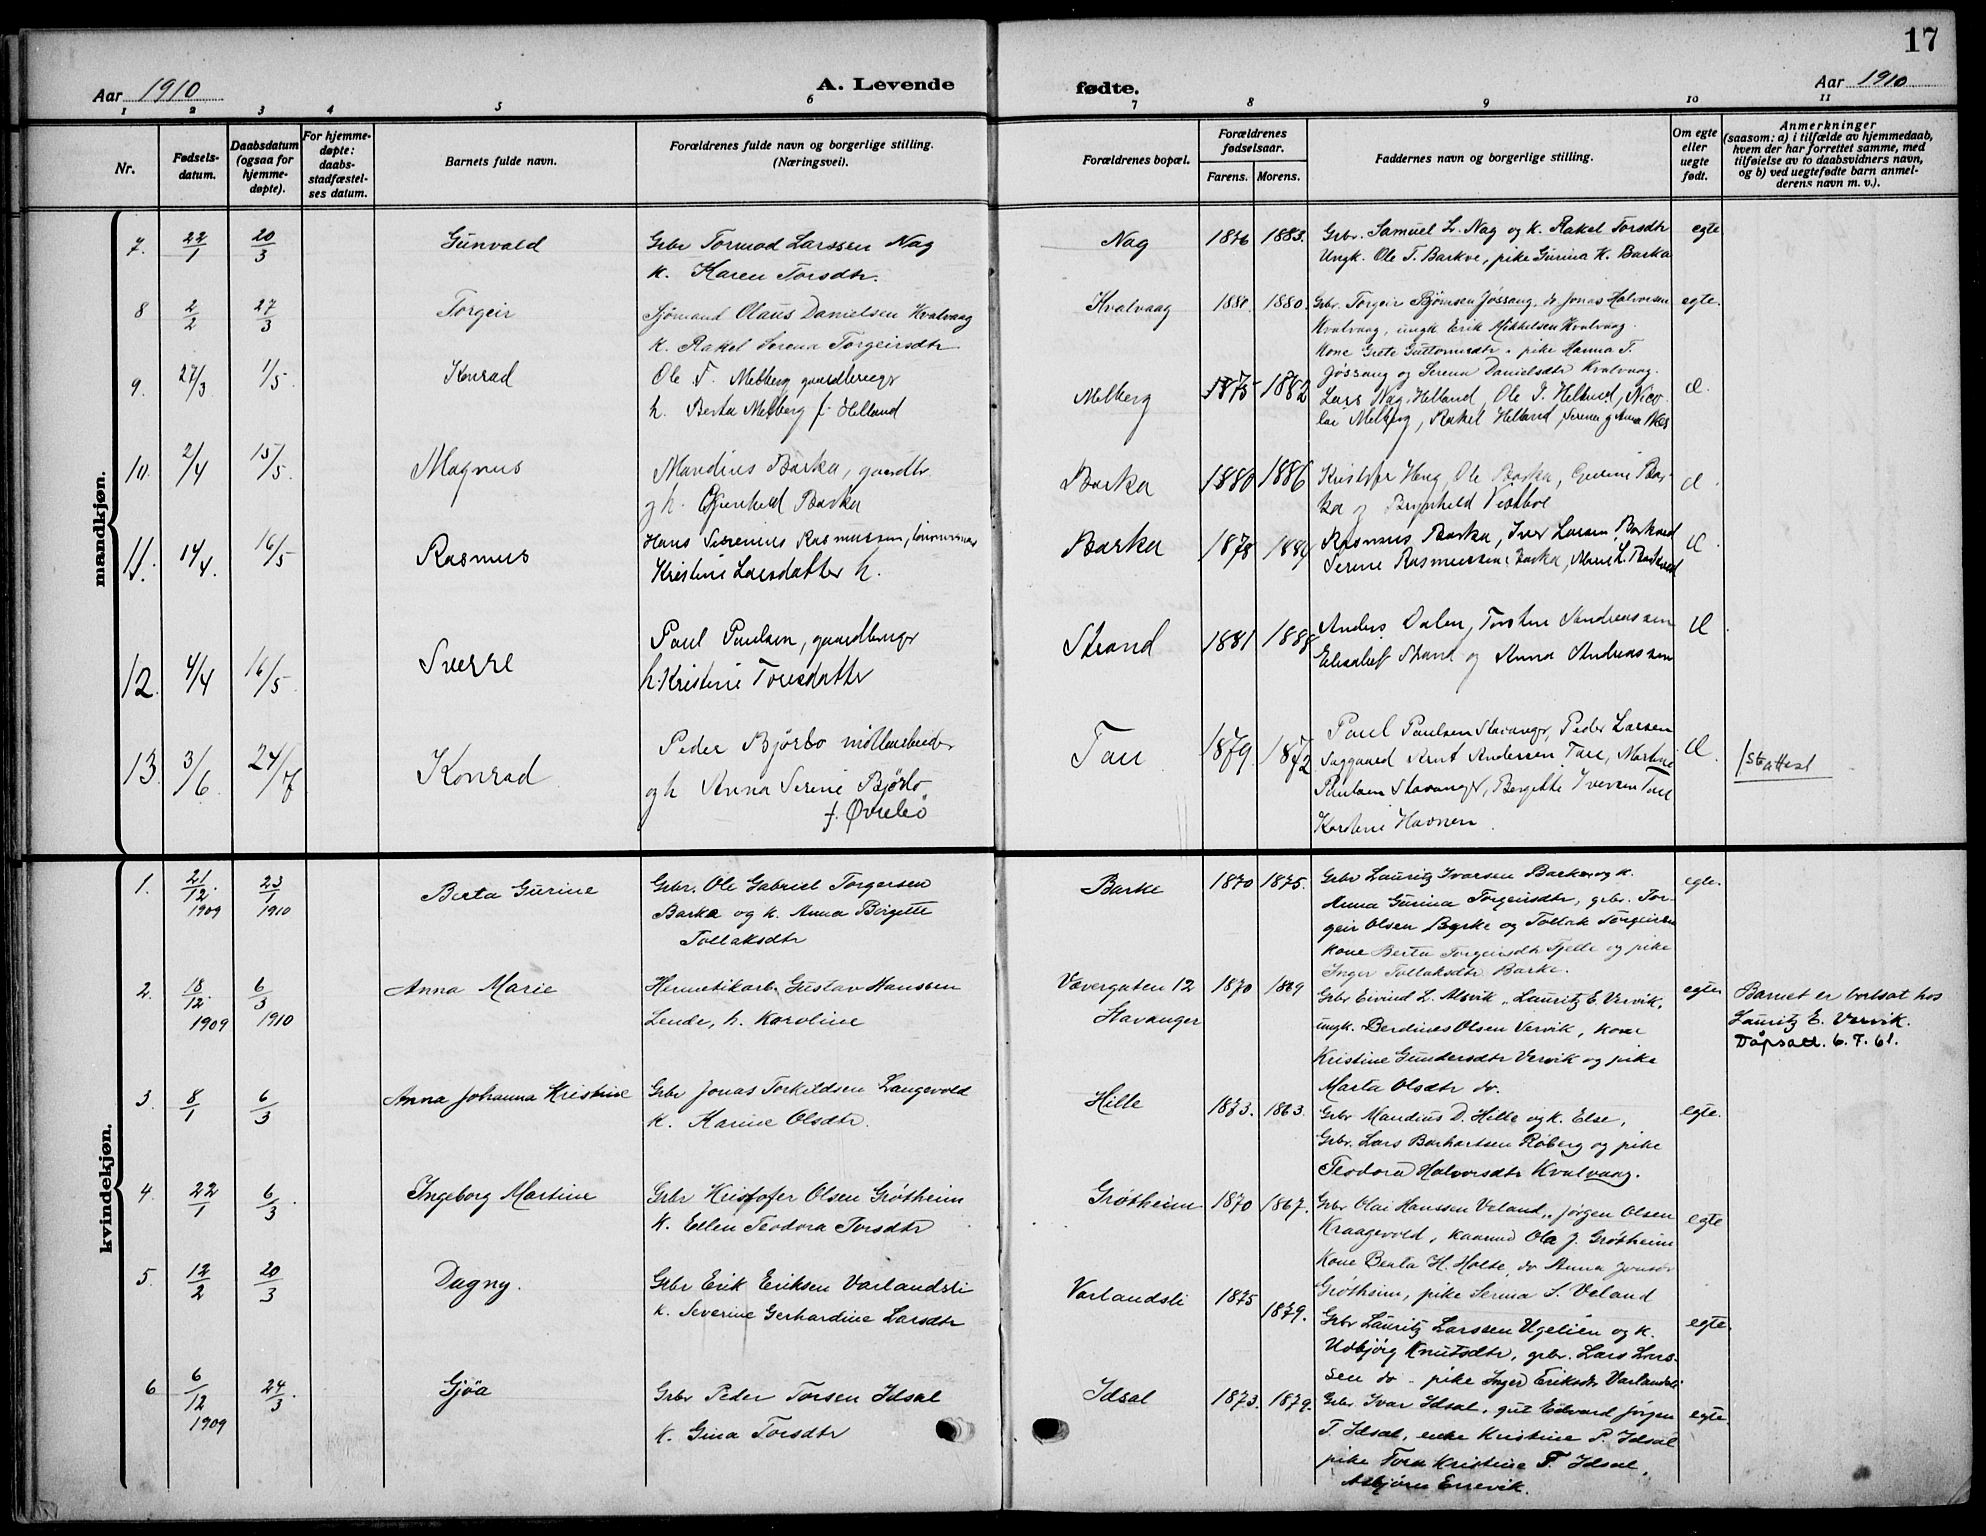 17
Aar 1910
A. Levende
fødte.
Aar 1910
1 2 3 4 5 6 7 8 9 10 11
Nr.
Fødsels-
datum.
Daabsdatum
(ogsaa for
hjemme-
døpte).
For hjemme-
døpte:
daabs-
stadfæstel-
ses datum.
Barnets fulde navn.
Forældrenes fulde navn og borgerlige stilling.
(Næringsvei).
Forældrenes bopæl.
Forældrenes
fødselsaar.
Farens. Morens.
Faddernes navn og borgerlige stilling.
Om egte
eller
uegte
født.
Anmerkninger
(saasom: a) i tilfælde av hjemmedaab,
hvem der har forrettet samme, med
tilføielse av to daabsvidners navn,
og b) ved uegtefødte barn anmel-
derens navn m. v.).
mandkjøn.
7. 22/1 20/3 Gunvald
Grbr Tormod Larssen Nag
K. Karen Torsdtr.
Nag 1876 1883.
Grbr. Samuel L. Nag og K. Rakel Torsdtr
Ungk. Ole T. Barkve, pike Gurina K. Barka
egte
8 2/2 27/3 Torgeir
Sjømand Olaus Danielsen Kvalvaag
K. Rakel Serena Torgeirsdtr.
Kvalvaag 1880. 1880.
Grbr. Torgeir Bjørnsen Jøssang, do Jonas Halvorsen
Kvalvaag, ungk Erik Mikkelsen Kvalvaag.
Kone Grete Guttormsdtr. pike Hanna T.
Jøssang og Serena Danielsdtr Kvalvaag.
egte.
9. 27/3 1/5. Konrad
Ole T. Melberg gaardbruger
h. Berta Melberg f. Helland
Melberg 1875 1882
Lars Nag, Helland, Ole J. Helland, Nico-
lai Melberg, Rakel Helland, Serena g Anna Næs
10. 2/4 15/5. Magnus
Mandius Barka, gaardbr.
og h. Gunhild Barka
Barka 1880 1886
Kristofer Heng Ole Barka, Gurine Bar-
ka og Brynhild
11. 14/4. 16/5 Rasmus
Hans Serenius Rasmussen,
Kristine Larsdatter h.
Barka 1878
Rasmus Barka, Iver Larsen Barkved
Serine Rasmussen Barka, Marie L. Barkved
12. 4/4 16/5. Sverre
Paul Paulsen, gaardbruger
h. Kristine Toresdatter
Strand 1881 1888
Anders Dalen, Torstein Andreassen
Elisabet Strand og Anna Andreassen
13. 3/6. 24/7 Konrad
Peder Bjørbo møllearbeider
og h Anna Serine Bjørbo
f. Øvrebø
Tau 1879. 1872
Paul Paulsen Stavanger, Peder Larsen
Saggaard Arnt Andersen Tau, Martine
Paulsen Stavanger, Bergitte Iversen Tau
Karstine Havnen.
1 stk attest
kvindekjøn.
1. 21/12. 1909 23/1 1910 Berta Gurine
Grbr. Ole Gabriel Torgersen
Barka og K. Anna Birgitte
Tollaksdtr
Barke 1870 1875.
Grbr Lauritz Ivarsen Barke og K.
Anna Gurina Torgeirsdtr, grbr. Tor-
geir Olsen Byrke og Tollak Torgeirsen
Kone Berta Torgeirsdtr Fjelde og pike
Inger Tollaksdtr Barke.
egte.
2. 18/12. 1909 6/3 1910 Anna Marie
Hermetikarb. Gustav Hanssen
Lende, h. Karoline
Vævergaten 12
Stavanger
1870 1869
Grbr Eivind L. Alsvik, Lauritz E. Vervik,
ungk. Berdines Olsen Vervik, kone
Kristine Gundersdtr Vervik og pike
Marta Olsdtr do.
egte
Barnet er bortsat hos
Lauritz E. Vervik.
Dåpsatt. 6. 7. 61.
3. 8/1 6/3 Anna Johanna Kristine
Grbr Jonas Torkildsen Langevold
K. Karine Olsdtr.
Hille 1873. 1863.
Grbr Mandius D. Hille og K. Else,
Grbr. Lars Barhartsen Røberg og pike
Teodora Halvorsdtr Kvalvaag.
egte.
4. 22/1 6/3 Ingeborg Martine
Grbr Kristofer Olsen Grøtheim
K. Ellen Teodora Torsdtr
Grøtheim 1870 1867.
Grbr Olai Hanssen Veland, Jørgen Olsen
Kraagevold, kaarmd Ola J. Grøtheim
Kone Berta H. Holte, do Anna Jonsdtr
Grøtheim, pike Serina S. Veland
egte
5. 12/2 20/3 Dagny.
Grbr Erik Eriksen Varlandsli
K. Severine Gerhardine Larsdtr
Varlandsli 1875 1879.
Grbr Lauritz Larssen Ugelien og K.
Udbjørg Knutsdtr, grbr. Lars Lars-
sen do. pike Inger Eriksdtr Varlandsli
egte.
6 6/12 1909 24/3. Gjøa
Grbr Peder Torsen Idsal
K. Gina Torsdtr
Idsal 1873. 1879.
Grbr Ivar Idsal, gut Edvard Jørgen
T. Idsal, enke Kristine P. Idsal
pike Tora Kristine T. Idsal,
Asbjørn Errevik.
egte.